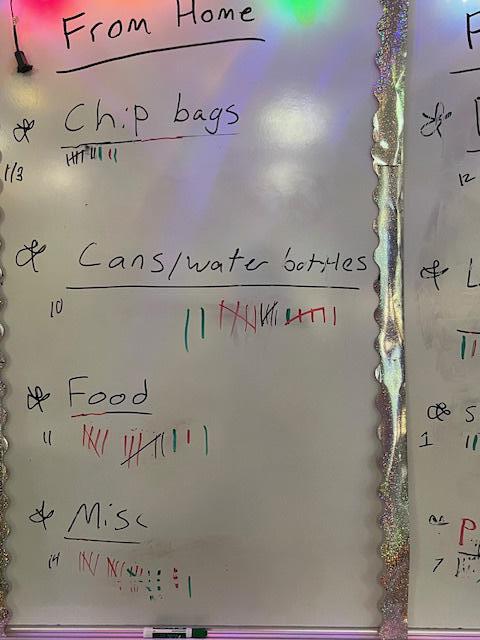 From Home
Chip bags
1/3
Cans/water bottles
10
Food
11
Misc
14
12
L
S
1
P
7